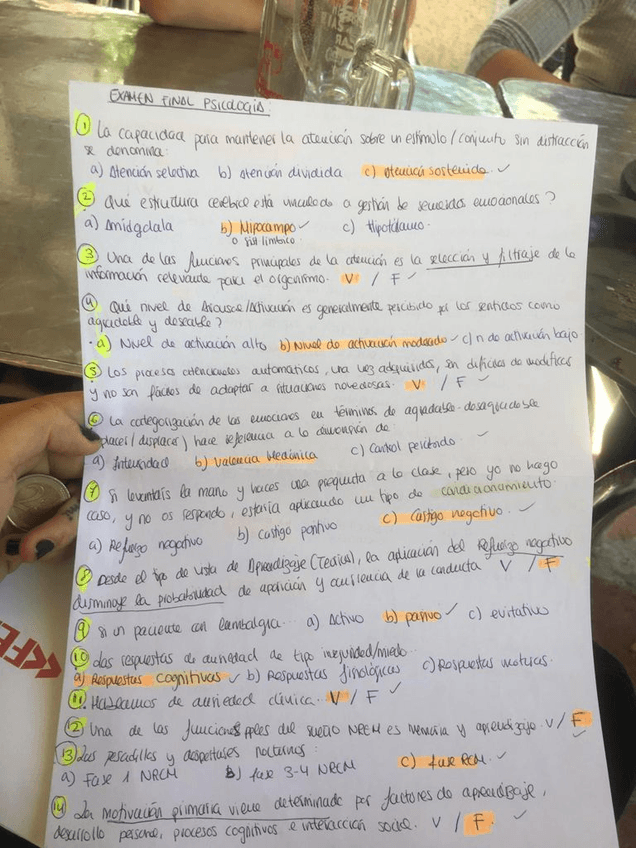 EXAMEN FINAL PSICOLOGÍA.
1 La capacidad para mantener la atención sobre un estímulo / conjunto sin distracción
se denomina:
a) Atención selectiva b) atención dividida c) atención sostenida ✓
2 Qué estructura cerebral está vinculada a gestión de recuerdos emocionales?
a) Amígdala b) Hipocampo ✓ c) Hipotálamo.
o sist límbico
3 Una de las funciones principales de la atención es la selección y filtraje de la
información relevante para el organismo. V / F ✓
4 Qué nivel de Arousal/Activación es generalmente percibido por los sentidos como
agradable y deseable?
a) Nivel de activación alto b) Nivel de activación moderado ✓ c) n de activación bajo
5 Los procesos atencionales automáticos, una vez adquiridos, son difíciles de modificar
y no son fáciles de adaptar a situaciones novedosas. V / F ✓
6 La categorización de las emociones en términos de agradable-desagradable
(placer/displacer) hace referencia a la dimensión de:
a) Intensidad b) Valencia Hedónica c) Control percibido ✓
7 Si levantáis la mano y haces una pregunta a la clase, pero yo no hago
caso, y no os respondo, estaría aplicando un tipo de condicionamiento.
a) Refuerzo negativo b) Castigo positivo c) Castigo negativo ✓
8 Desde el tipo de vista de Aprendizaje (Teorías), la aplicación del Refuerzo negativo
disminuye la probabilidad de aparición y ocurrencia de la conducta V / F
9 Si un paciente con lumbalgia... a) Activo b) pasivo ✓ c) evitativo
10 Las respuestas de ansiedad de tipo inseguridad/miedo.
a) Respuestas cognitivas ✓ b) Respuestas fisiológicas c) Respuestas motoras.
11 Hablamos de ansiedad clínica... V / F ✓
12 Una de las funciones pples del sueño NREM es memoria y aprendizaje. V / F
13 Las pesadillas y despertares nocturnos:
a) Fase 1 NREM b) fase 3-4 NREM c) fase REM. ✓
14 La motivación primaria viene determinada por factores de aprendizaje,
desarrollo personal, procesos cognitivos e interacción social. V / F ✓